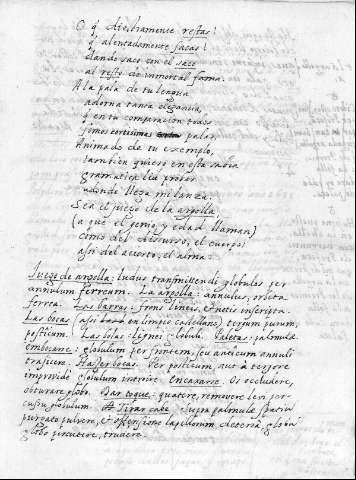 O q̃ diestramente restas!
q̃ alentadamente sacas!
dando saco con el saco
al resto de immortal fama.
A la pala de tu lengua
adorna tanta elegancia,
q̃ en tu comparacion todos
somos certissimas palas.
Animado de tu exemplo,
tambien quiero en esta
gramatica lid probar
adonde llega mi lanza,
Sea el juego de la argolla
(a que el genio, y edad llaman)
como del discurso, el cuerpo,
assi del acierto, el alma.
Juego de argolla: ludus transmittendi globulos per
annulum ferreum. La argolla: annulus, orbita
ferrea. Las barras: frons lineis, et notis inscripta.
Las bocas (assi en limpio castellano) tergum purum,
posticum. Las bolas: lignei globuli. Paletas: palmulæ
Embocare: globulum per frontem, seu anticum annuli
traiicere. Hazer bocas. Per posticum, aut à tergore
improvidè globulum intrare. Encaxarse. Os occludere,
obturare globo. Dar toque: quatere, removere levi per-
cussu globulum. Tirar cabe, supra palmulæ spatiũ
purgato pulvere, et offensione lapillorum detersâ globũ
globo percutere, trudere.